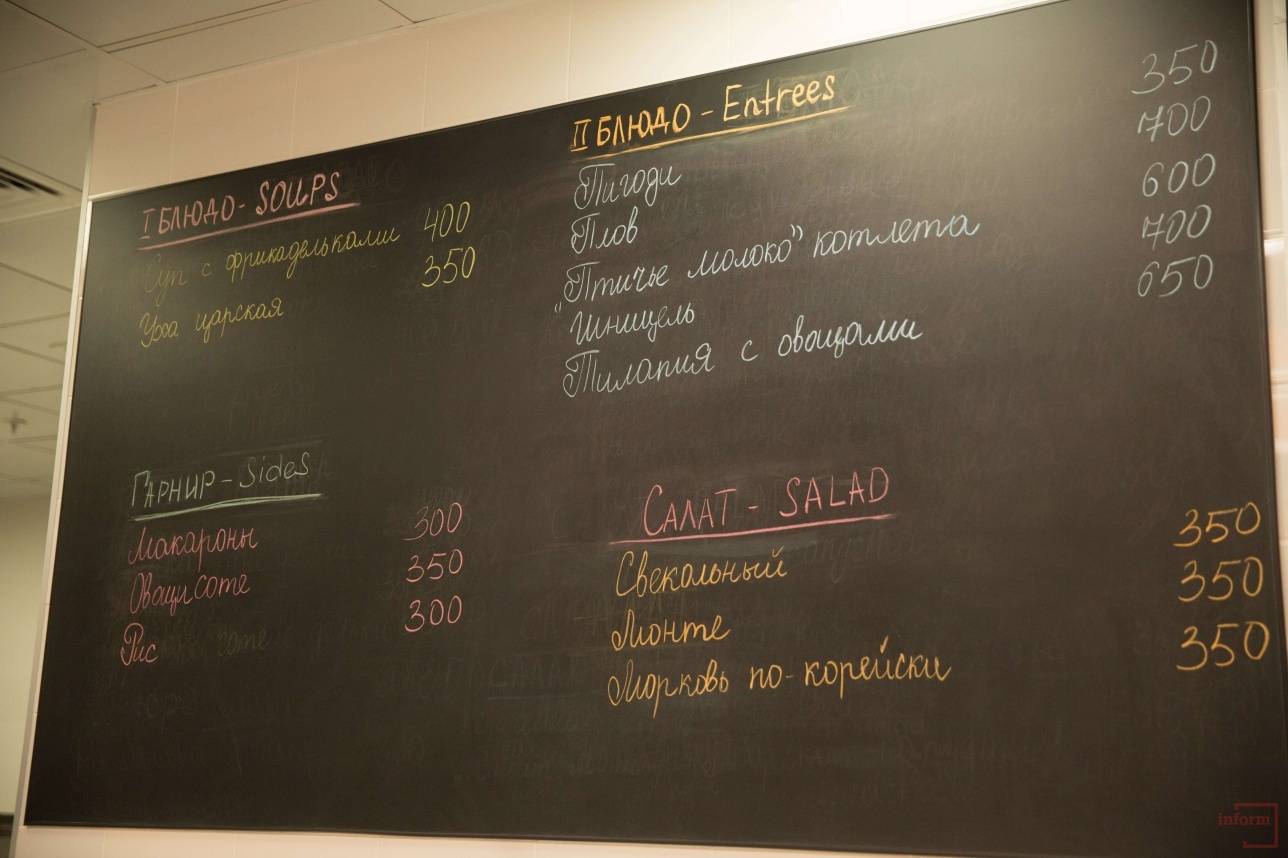 I БЛЮДО - SOUPS
Суп с фрикадельками 400
Уха царская 350
II БЛЮДО - Entrees
Пигоди 350
Плов 700
"Птичье молоко" котлета 600
Шницель 700
Тилапия с овощами 650
ГАРНИР - Sides
Макароны 300
Овощи соте 350
Рис 300
САЛАТ - SALAD
Свекольный 350
Монте 350
Морковь по-корейски 350
inform